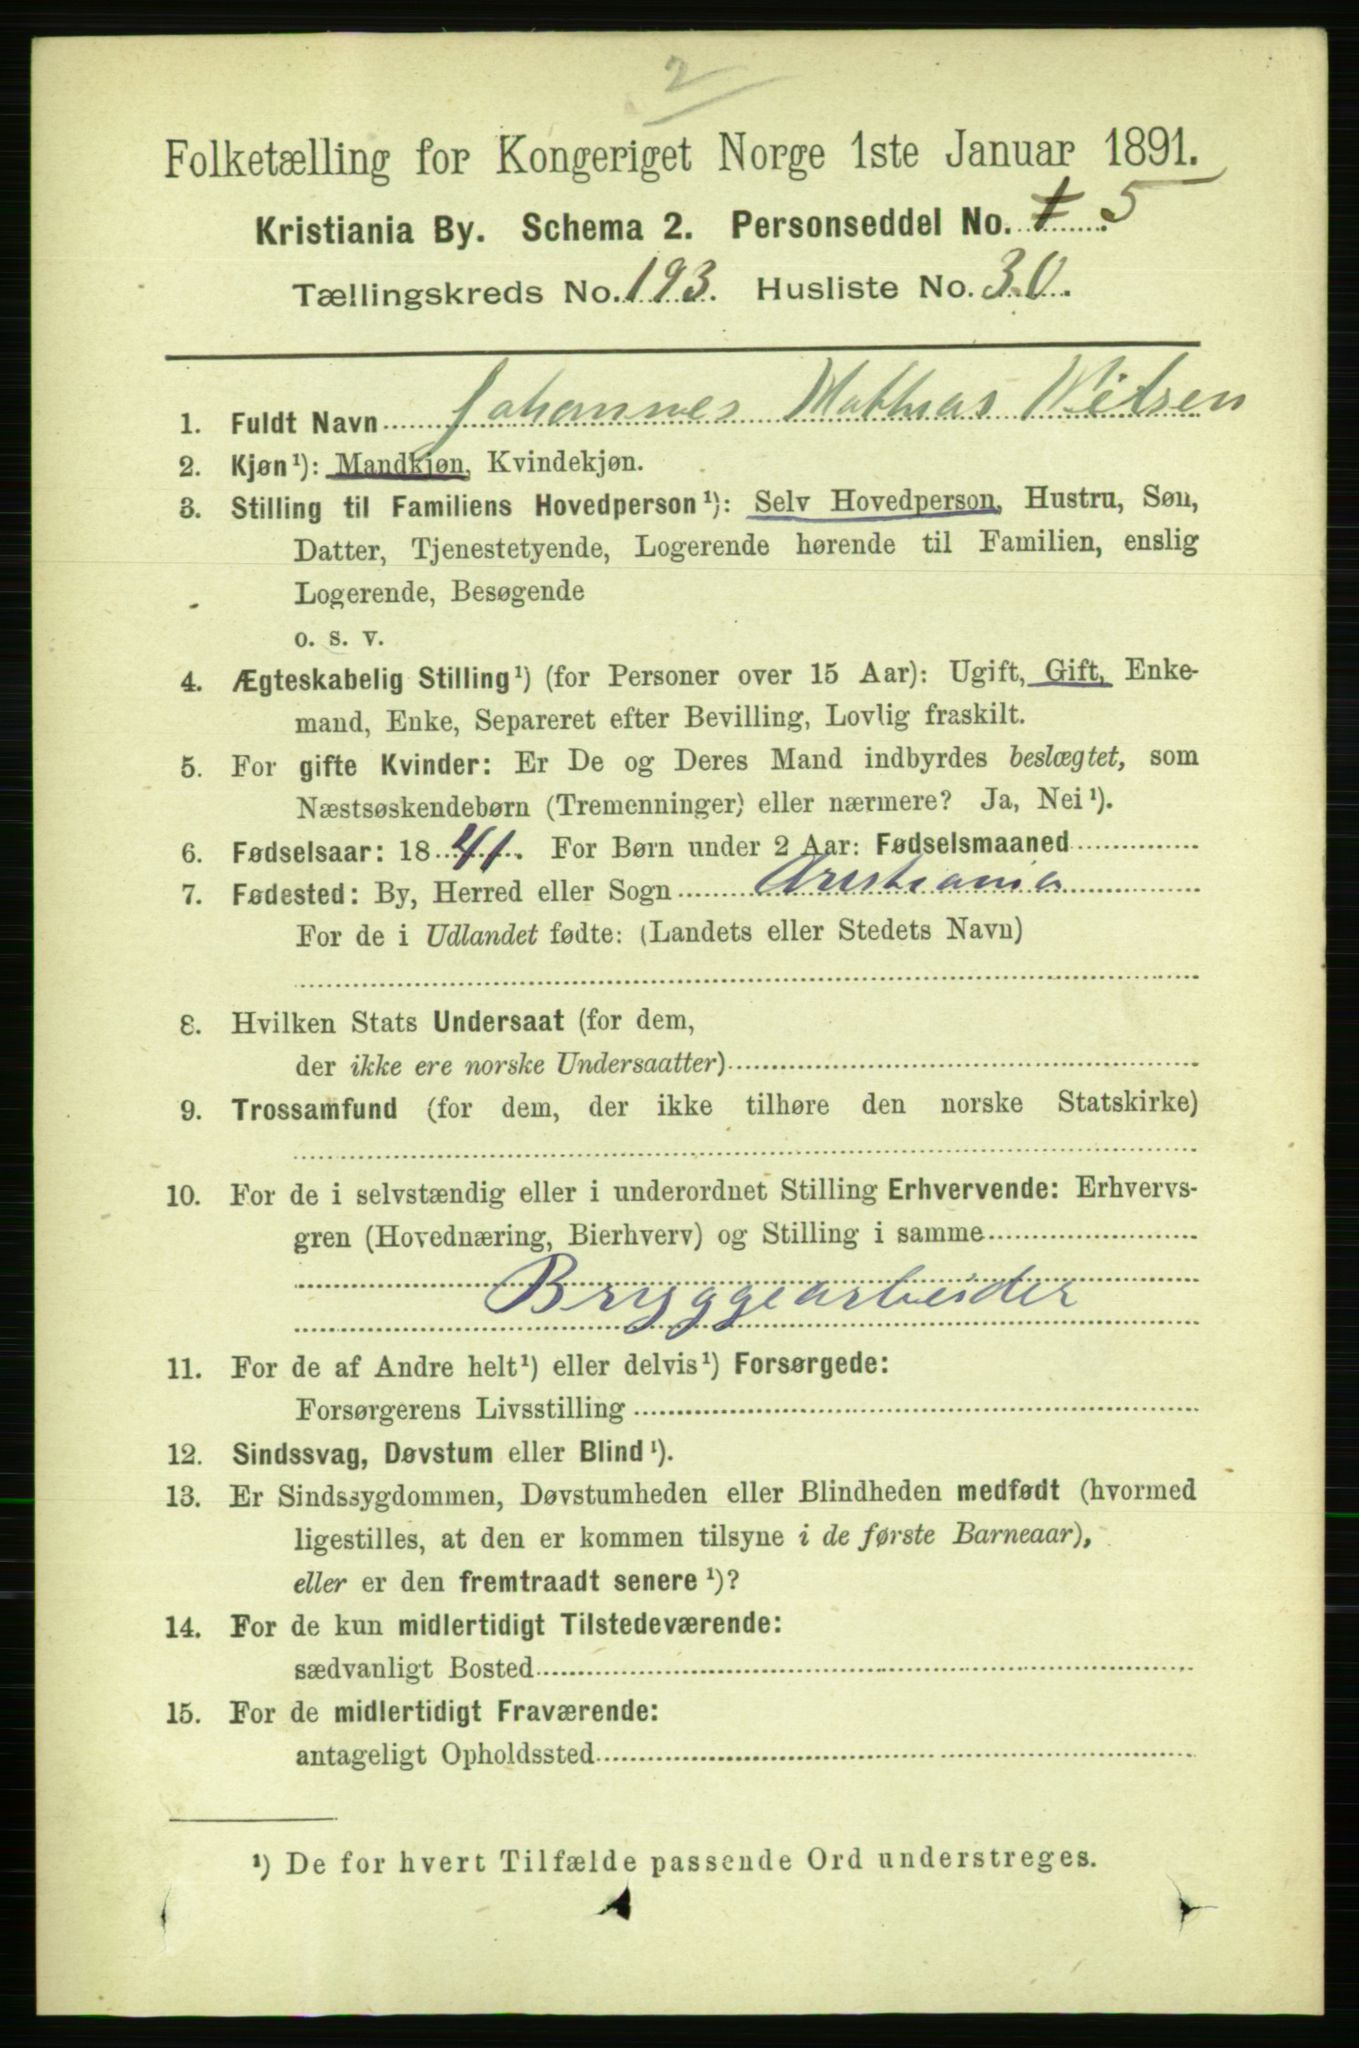 2
Folketælling for Kongeriget Norge 1ste Januar 1891.
Kristiania By. Schema 2. Personseddel No. 5
Tællingskreds No. 193. Husliste No. 30.
1. Fuldt Navn Johannes Mathias
2. Kjøn¹): Mandkjøn, Kvindekjøn.
3. Stilling til Familiens Hovedperson¹): Selv Hovedperson, Hustru, Søn,
Datter, Tjenestetyende, Logerende hørende til Familien, enslig
Logerende, Besøgende
o. s. v.
4. Ægteskabelig Stilling¹) (for Personer over 15 Aar): Ugift, Gift, Enke-
mand, Enke, Separeret efter Bevilling, Lovlig fraskilt.
5. For gifte Kvinder: Er De og Deres Mand indbyrdes beslægtet, som
Næstsøskendebørn (Tremenninger) eller nærmere? Ja, Nei¹).
6. Fødselsaar: 1841. For Børn under 2 Aar: Fødselsmaaned
7. Fødested: By, Herred eller Sogn Kristiania
For de i Udlandet fødte: (Landets eller Stedets Navn)
8. Hvilken Stats Undersaat (for dem,
der ikke ere norske Undersaatter)
9. Trossamfund (for dem, der ikke tilhøre den norske Statskirke)
10. For de i selvstændig eller i underordnet Stilling Erhvervende: Erhvervs-
gren (Hovednæring, Bierhverv) og Stilling i samme
Bryggearbeider
11. For de af Andre helt¹) eller delvis¹) Forsørgede:
Forsørgerens Livsstilling
12. Sindssvag, Døvstum eller Blind¹).
13. Er Sindssygdommen, Døvstumheden eller Blindheden medfødt (hvormed
ligestilles, at den er kommen tilsyne i de første Barneaar),
eller er den fremtraadt senere¹)?
14. For de kun midlertidigt Tilstedeværende:
sædvanligt Bosted
15. For de midlertidigt Fraværende:
antageligt Opholdssted
¹) De for hvert Tilfælde passende Ord understreges.